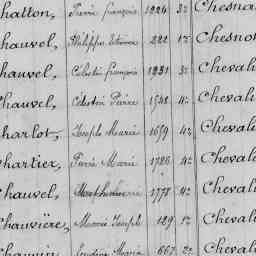 hatton, Pierre françois 1224 3e Chesna
hauvel, Philippe Etienne 222 1e Chesno
hauvel, Célestin françois 1231 3e Cheval
Chauvel, Célestin Pierre 1548 4e Chevali
Charlot, Joseph Marie 1659 4e Cheval
Chartier, Pierre Marie 1786 4e Cheval
Chauvel, 1778 4e Cheval
Chauvière, Joseph 189 1e Cheval
Marie 667 2e Cheval